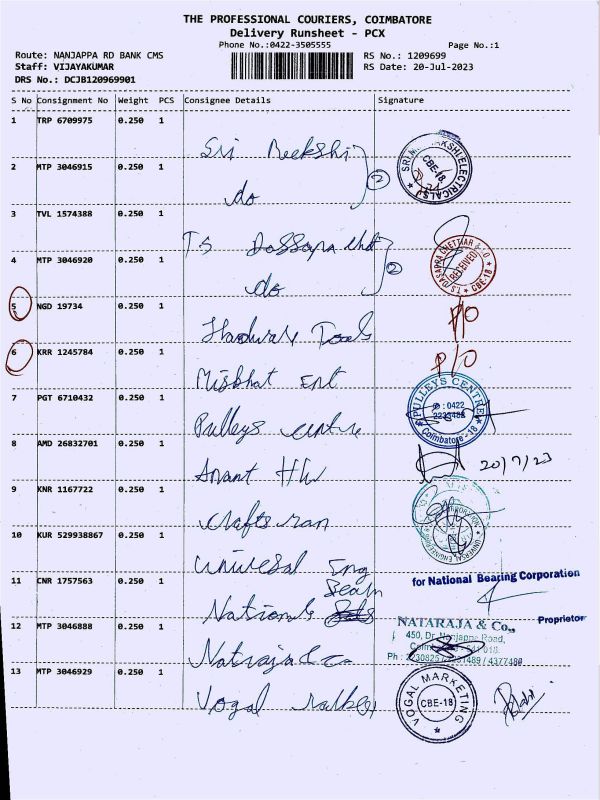 THE PROFESSIONAL COURIERS, COIMBATORE
Delivery Runsheet - PCX
Phone No.:0422-3505555 Page No.:1
Route: NANJAPPA RD BANK CMS RS No.: 1209699
Staff: VIJAYAKUMAR RS Date: 20-Jul-2023
DRS No.: DCJB120969901
S No Consignment No Weight PCS Consignee Details Signature
1 TRP 6709975 0.250 1 Sri
2 MTP 3046915 0.250 1 do 2
SRI ELECTRICALS CBE-18
3 TVL 1574388 0.250 1 T.S
4 MTP 3046920 0.250 1 do 2
T.S. DASAPPA CHETTIAR & CO RECEIVED CBE-18
5 NGD 19734 0.250 1 Hardware Tools P/O
6 KRR 1245784 0.250 1 Misbhat Ent P/O
7 PGT 6710432 0.250 1 Pulleys centre
PULLEYS CENTRE
: 0422
Coimbatore - 18
8 AMD 26832701 0.250 1 Anant HW 20/7/23
9 KNR 1167722 0.250 1 Craftsman
10 KUR 529938867 0.250 1 Universal Eng
UNIVERSAL ENGINEERING CORPORATION
11 CNR 1757563 0.250 1 National
for National Bearing Corporation
Proprietor
12 MTP 3046888 0.250 1 Natraja & co
NATARAJA & Co.,
450, Dr. Nanjappa Road,
Coimbatore - 641 018.
Ph : / 4377480
13 MTP 3046929 0.250 1 Vogal
VOGAL MARKETING CBE-18